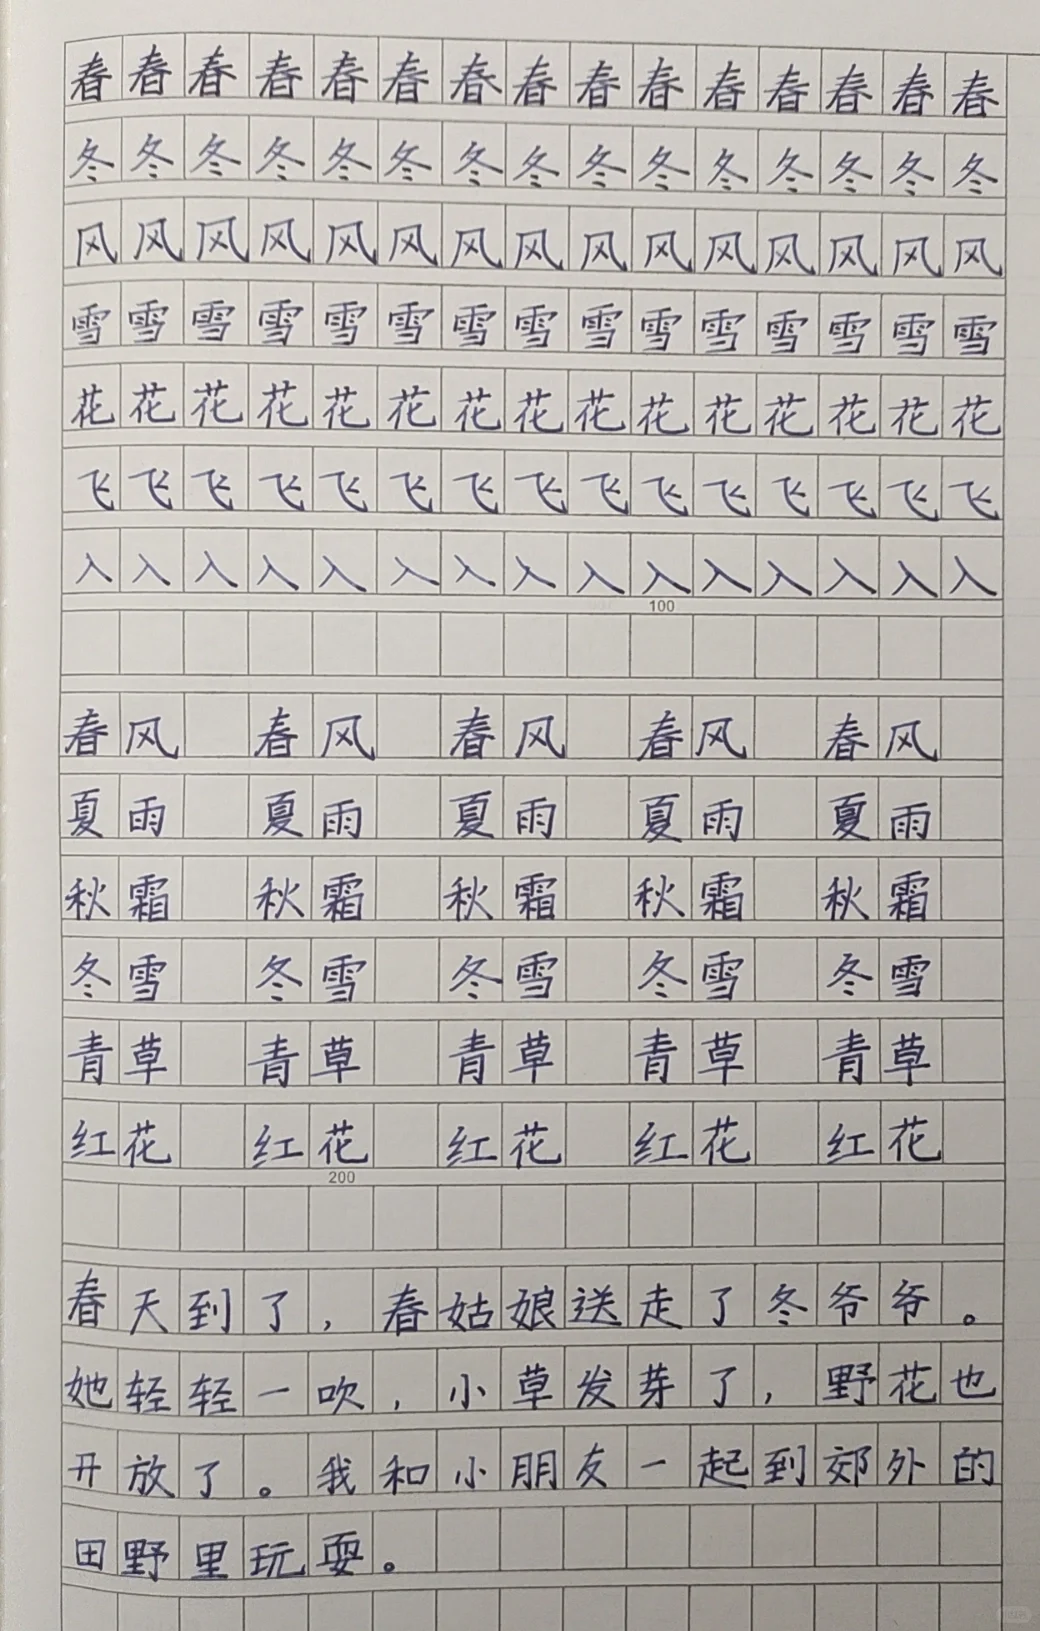 春春春春春春春春春春春春春春春
冬冬冬冬冬冬冬冬冬冬冬冬冬冬冬
风风风风风风风风风风风风风风风
雪雪雪雪雪雪雪雪雪雪雪雪雪雪雪
花花花花花花花花花花花花花花花
飞飞飞飞飞飞飞飞飞飞飞飞飞飞飞
入入入入入入入入入入入入入入入
100
春风 春风 春风 春风 春风
夏雨 夏雨 夏雨 夏雨 夏雨
秋霜 秋霜 秋霜 秋霜 秋霜
冬雪 冬雪 冬雪 冬雪 冬雪
青草 青草 青草 青草 青草
红花 红花 红花 红花 红花
200
春天到了，春姑娘送走了冬爷爷。
她轻轻一吹，小草发芽了，野花也
开放了。我和小朋友一起到郊外的
田野里玩耍。